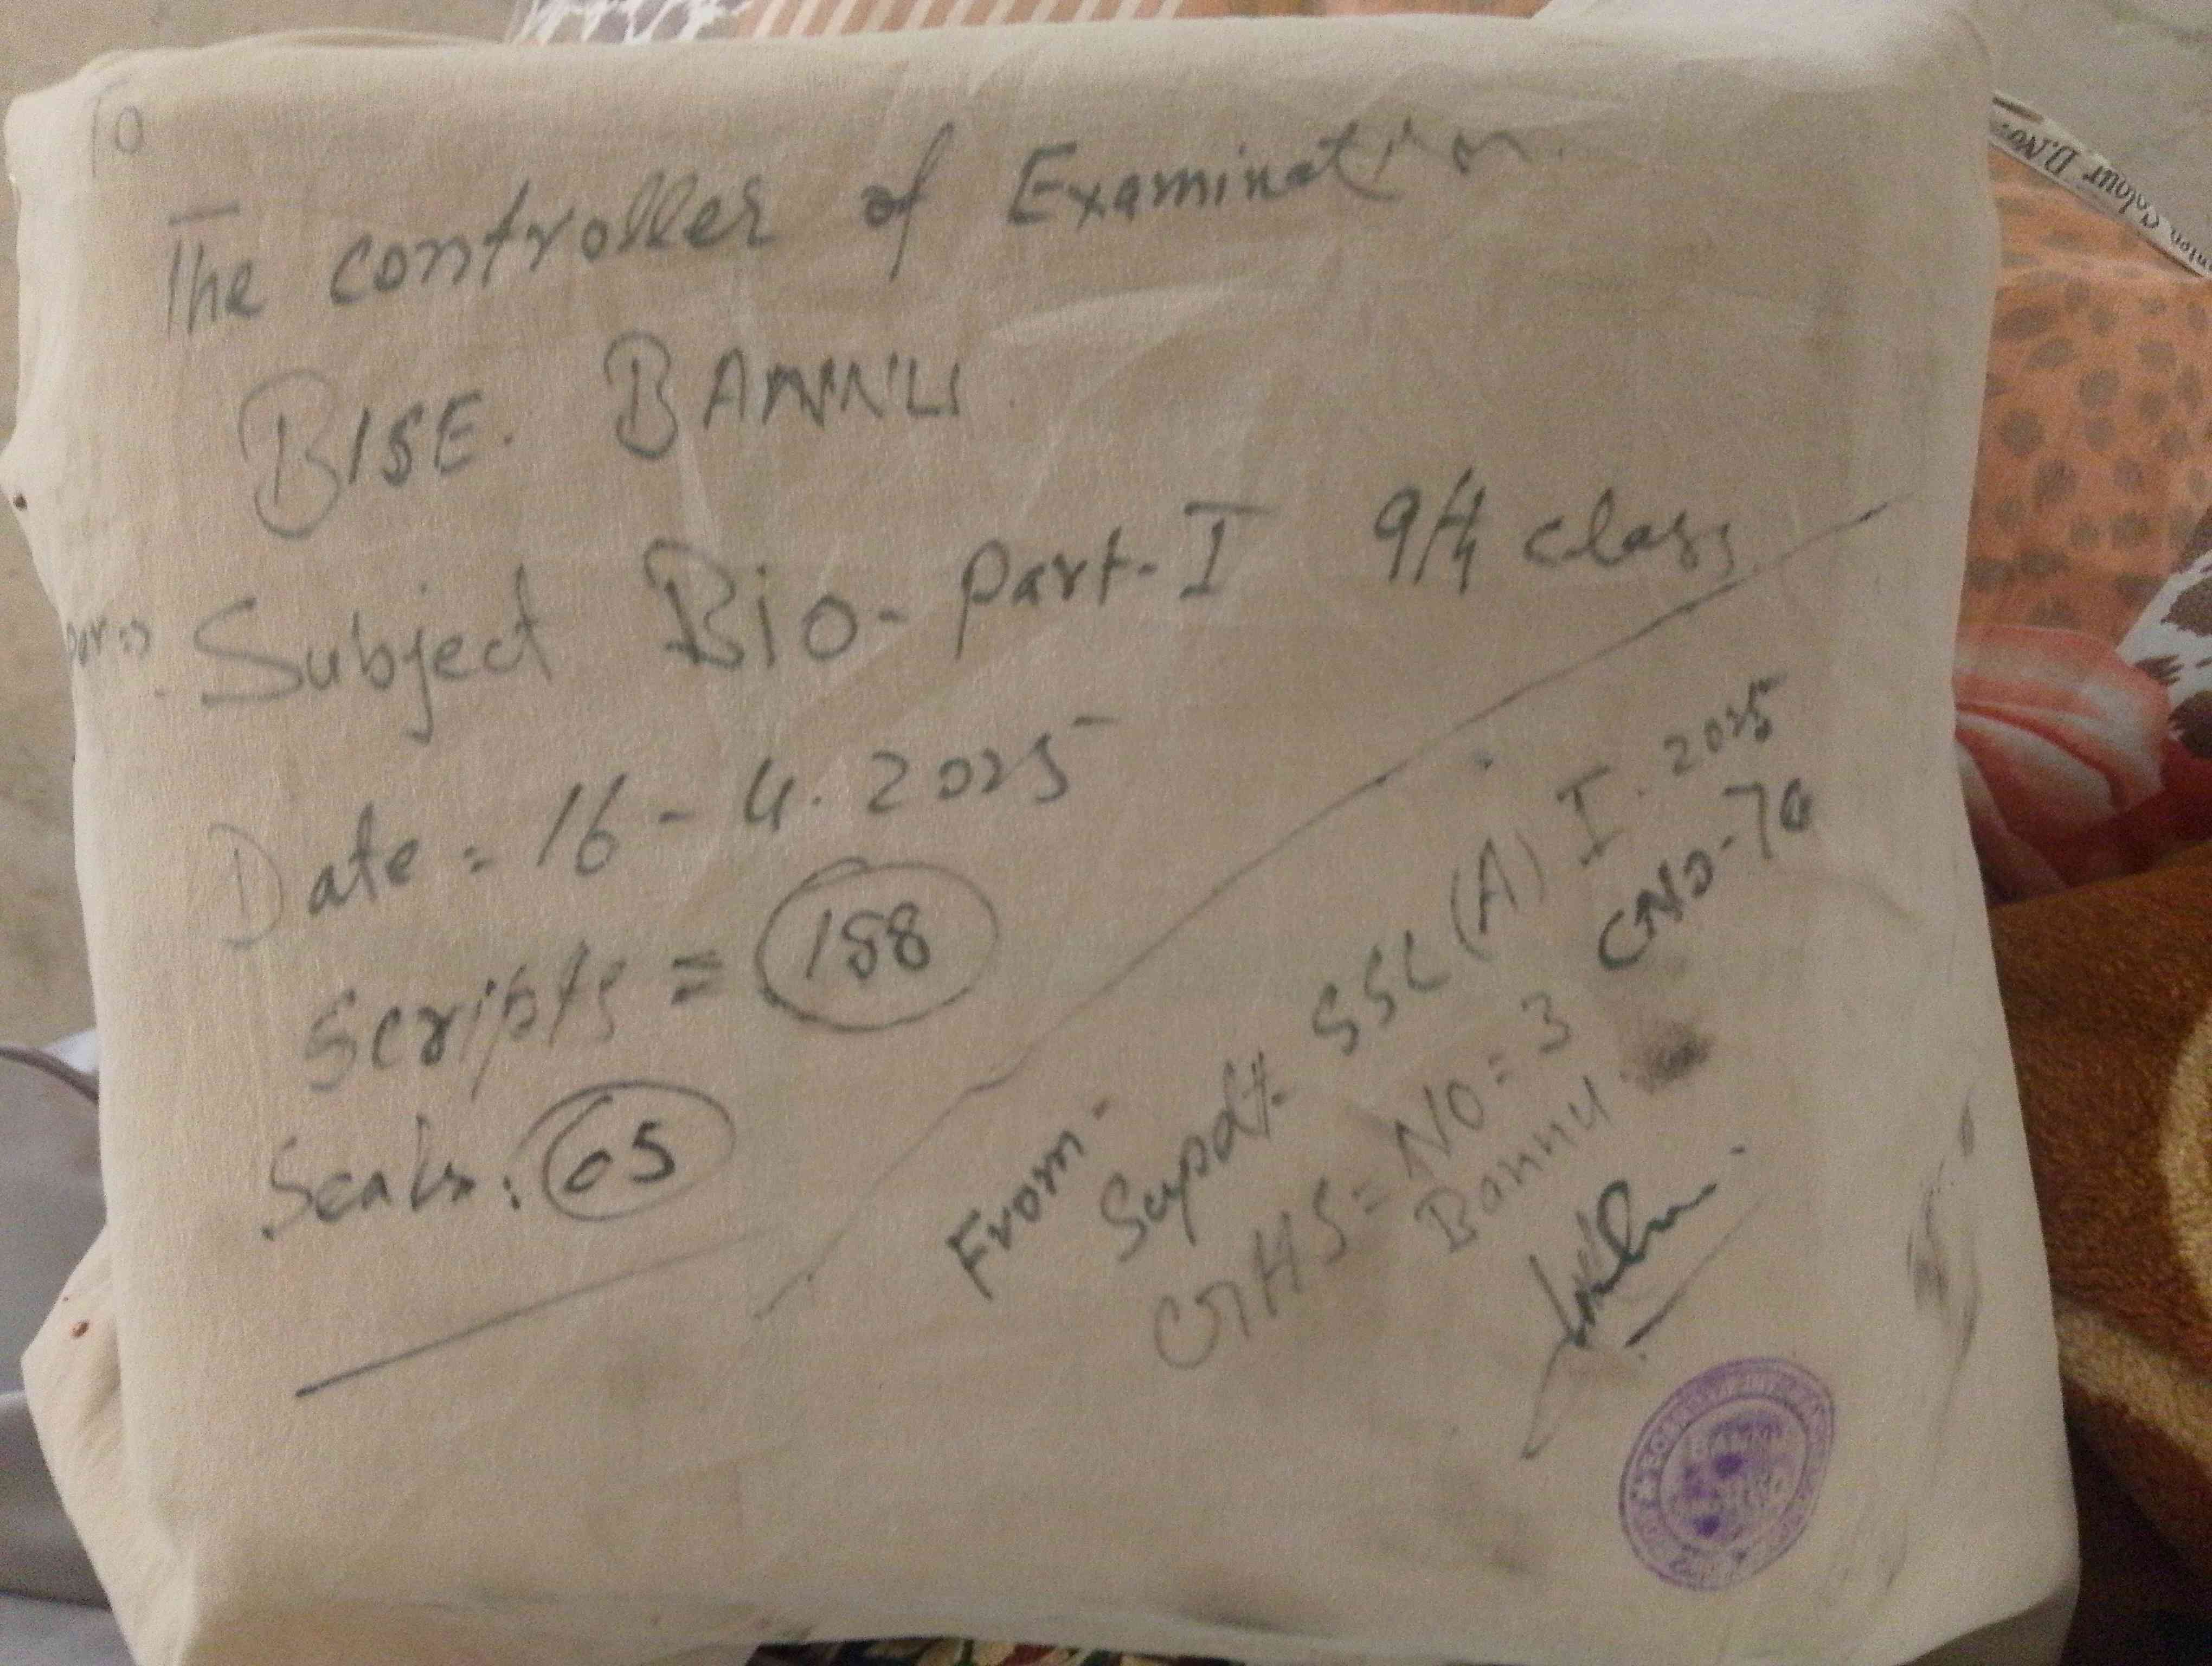 To
The controller of Examination.
BISE. BANNU.
Subject Bio- Part-I 9th class
Date = 16-4.2025
Scripts = 158
Seals: 05
From-
Supdt- SSC (A) I. 2025
GHS = NO = 3 CNO-70
Bannu.
Colour D.No: